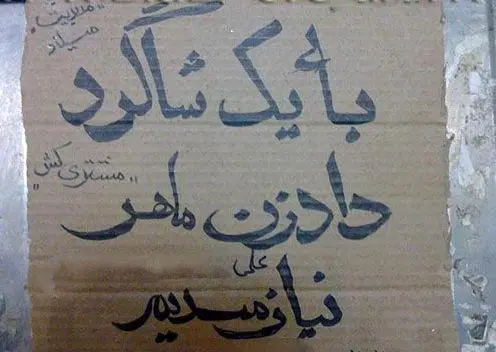 "مدیریت"
میلاد
بای یک شاگرد
"مشتری کش"
دادزن ماهر
علی
نیازمندیم